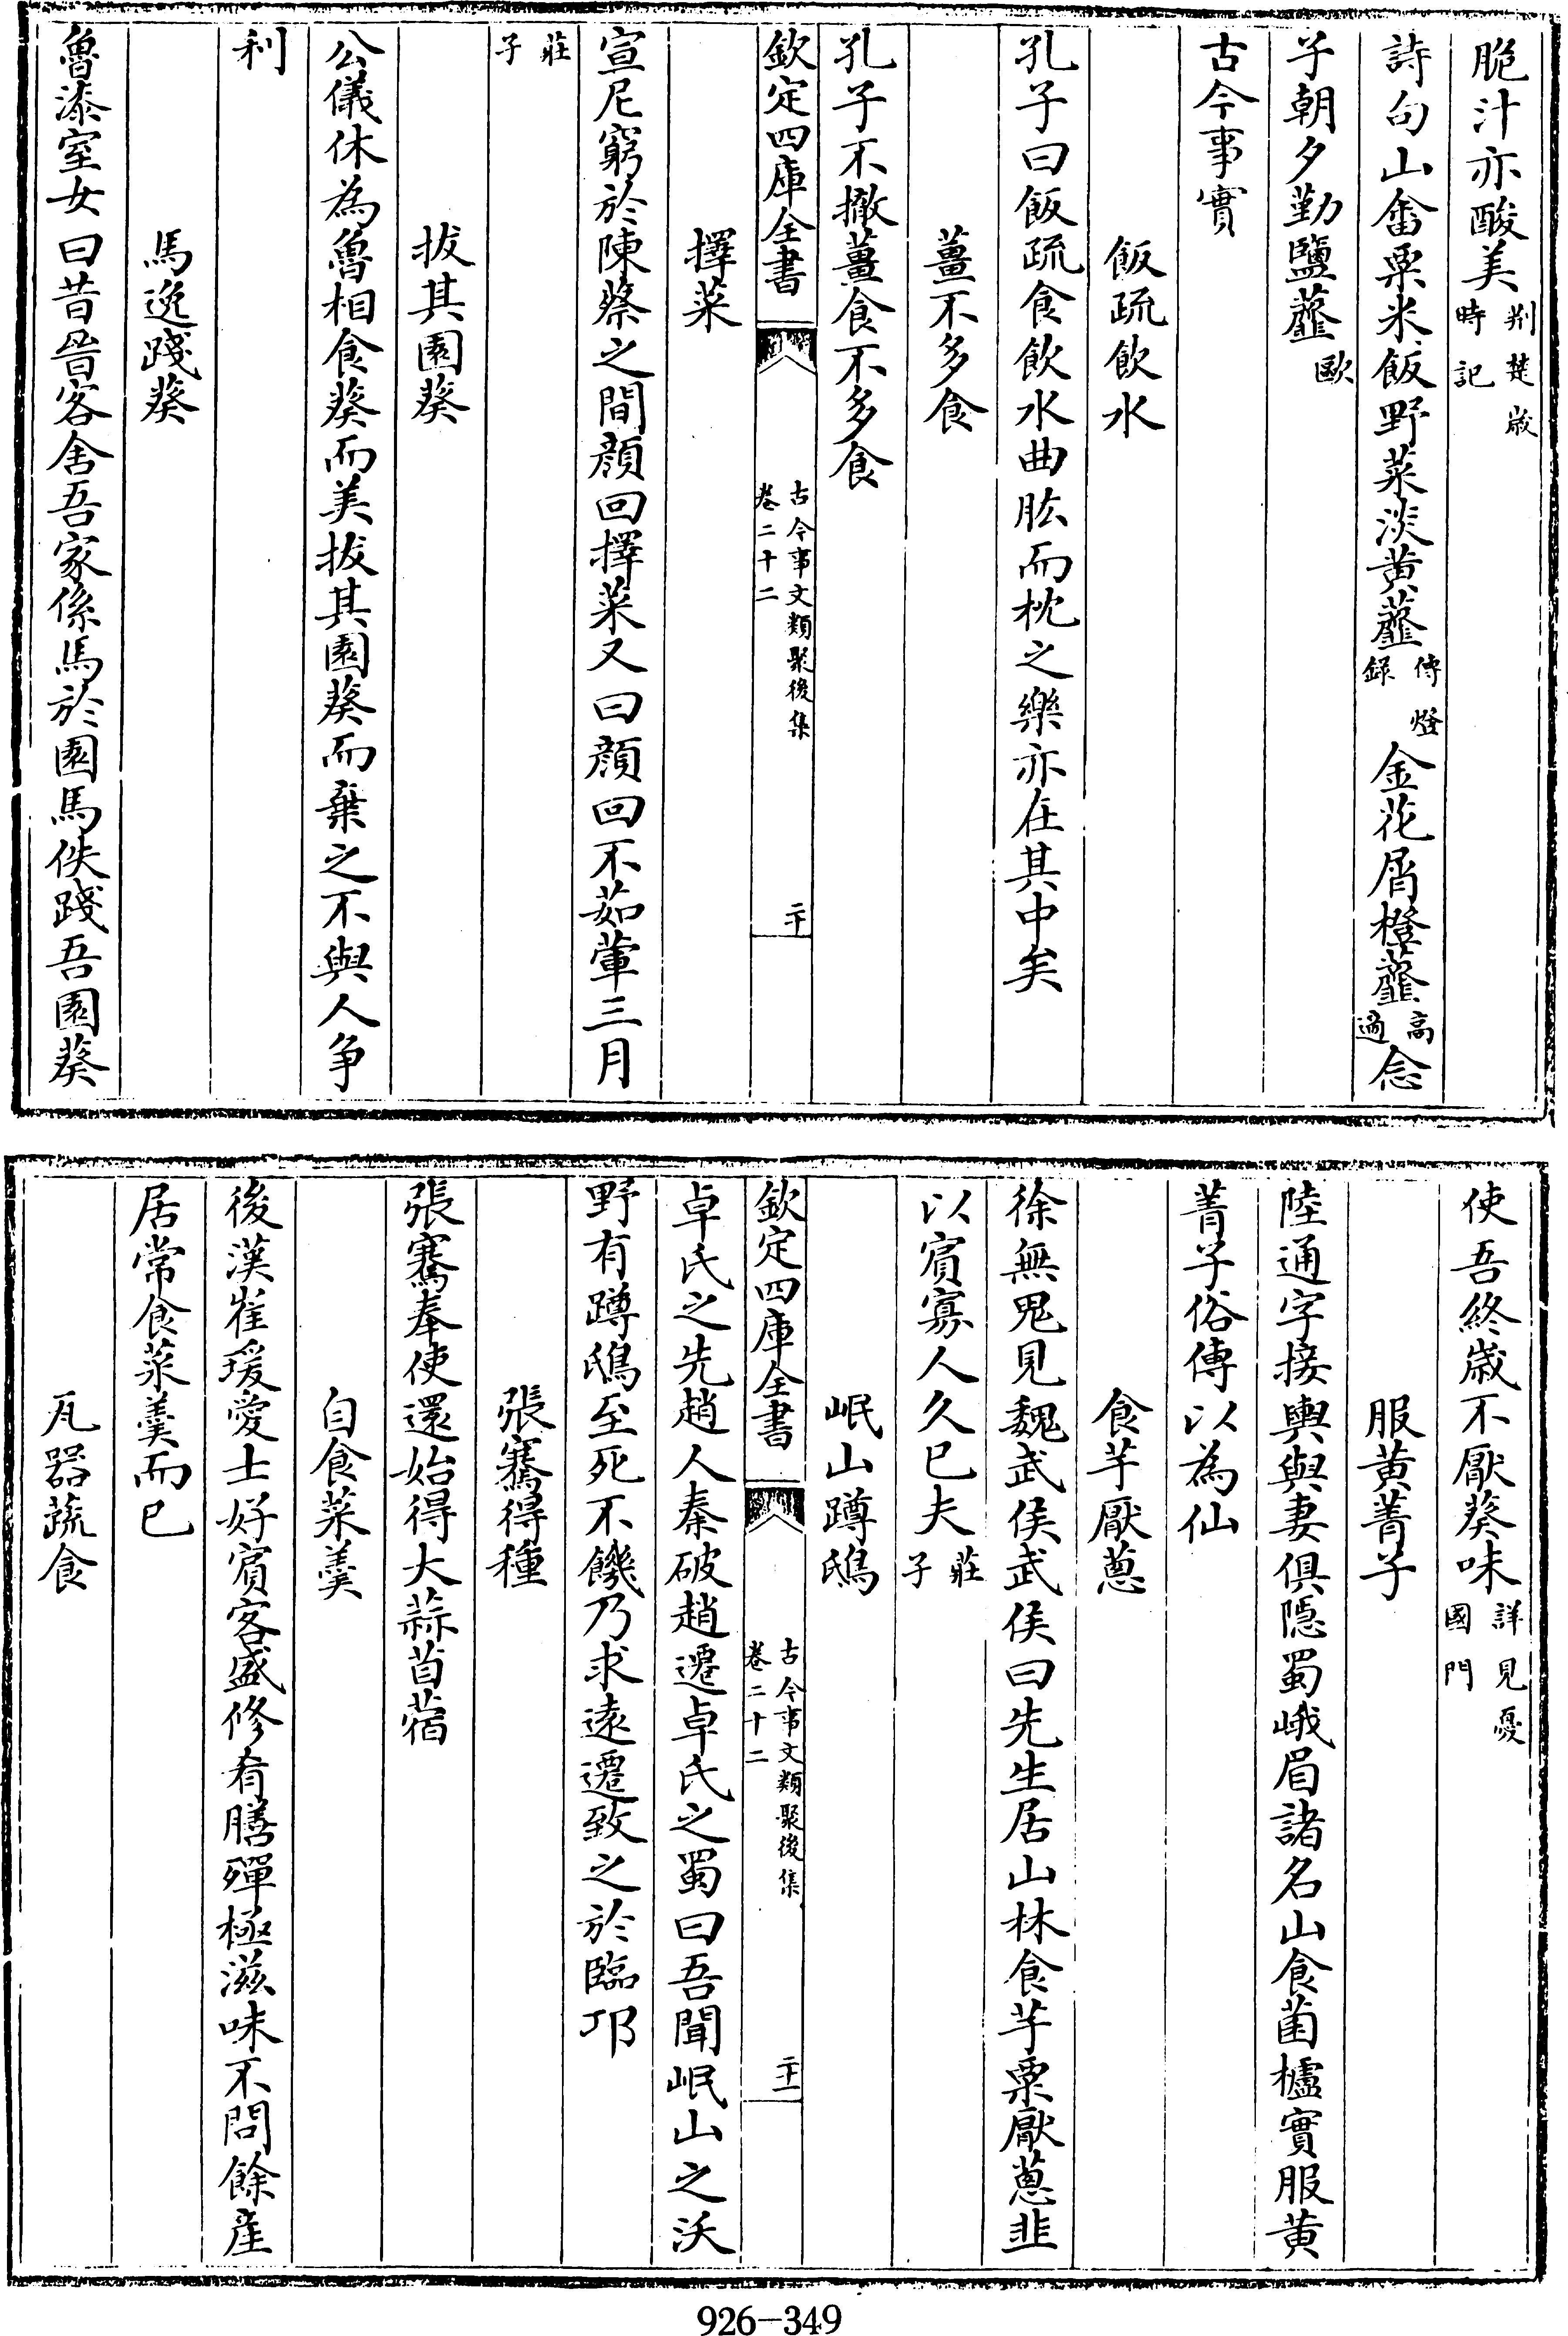 脆汁亦酸美荆楚歳時記
詩句山畬粟米飯野菜淡黄虀傳燈録金花屑橙虀高適念
子朝夕勤鹽虀歐
古今事實
飯疏飲水
孔子曰飯疏食飲水曲肱而枕之樂亦在其中矣
薑不多食
孔子不撤薑食不多食
欽定四庫全書
古今事文類聚後集
卷二十二
二十
擇菜
宣尼窮於陳蔡之間顔回擇菜又曰顔回不茹葷三月
莊子
拔其園葵
公儀休為魯相食葵而美拔其園葵而棄之不與人爭
利
馬逸踐葵
魯漆室女曰昔晉客舍吾家係馬於園馬佚踐吾園葵
使吾終歳不厭葵味詳見憂國門
服黄菁子
陸通字接輿與妻俱隱蜀峨眉諸名山食菌櫨實服黄
菁子俗傳以為仙
食芋厭蔥
徐無鬼見魏武侯武侯曰先生居山林食芋栗厭蔥韭
以賔寡人久已夫莊子
岷山蹲鴟
欽定四庫全書
古今事文類聚後集
卷二十二
二十一
卓氏之先趙人秦破趙遷卓氏之蜀曰吾聞岷山之沃
野有蹲鴟至死不饑乃求遠遷致之於臨邛
張騫得種
張騫奉使還始得大蒜苜蓿
自食菜羹
後漢崔瑗愛士好賔客盛修肴膳殫極滋味不問餘産
居常食菜羹而已
瓦器蔬食
926-349